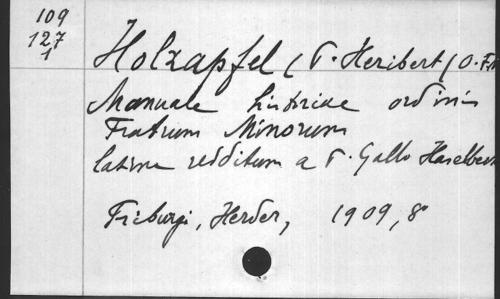 109
127
1
Holzapfel (P. Heribert / O.F.M
Manuale historiae ordinis
Fratrum Minorum
latine redditum a P. Gallo Haselbeck
Friburgi, Herder, 1909, 8°